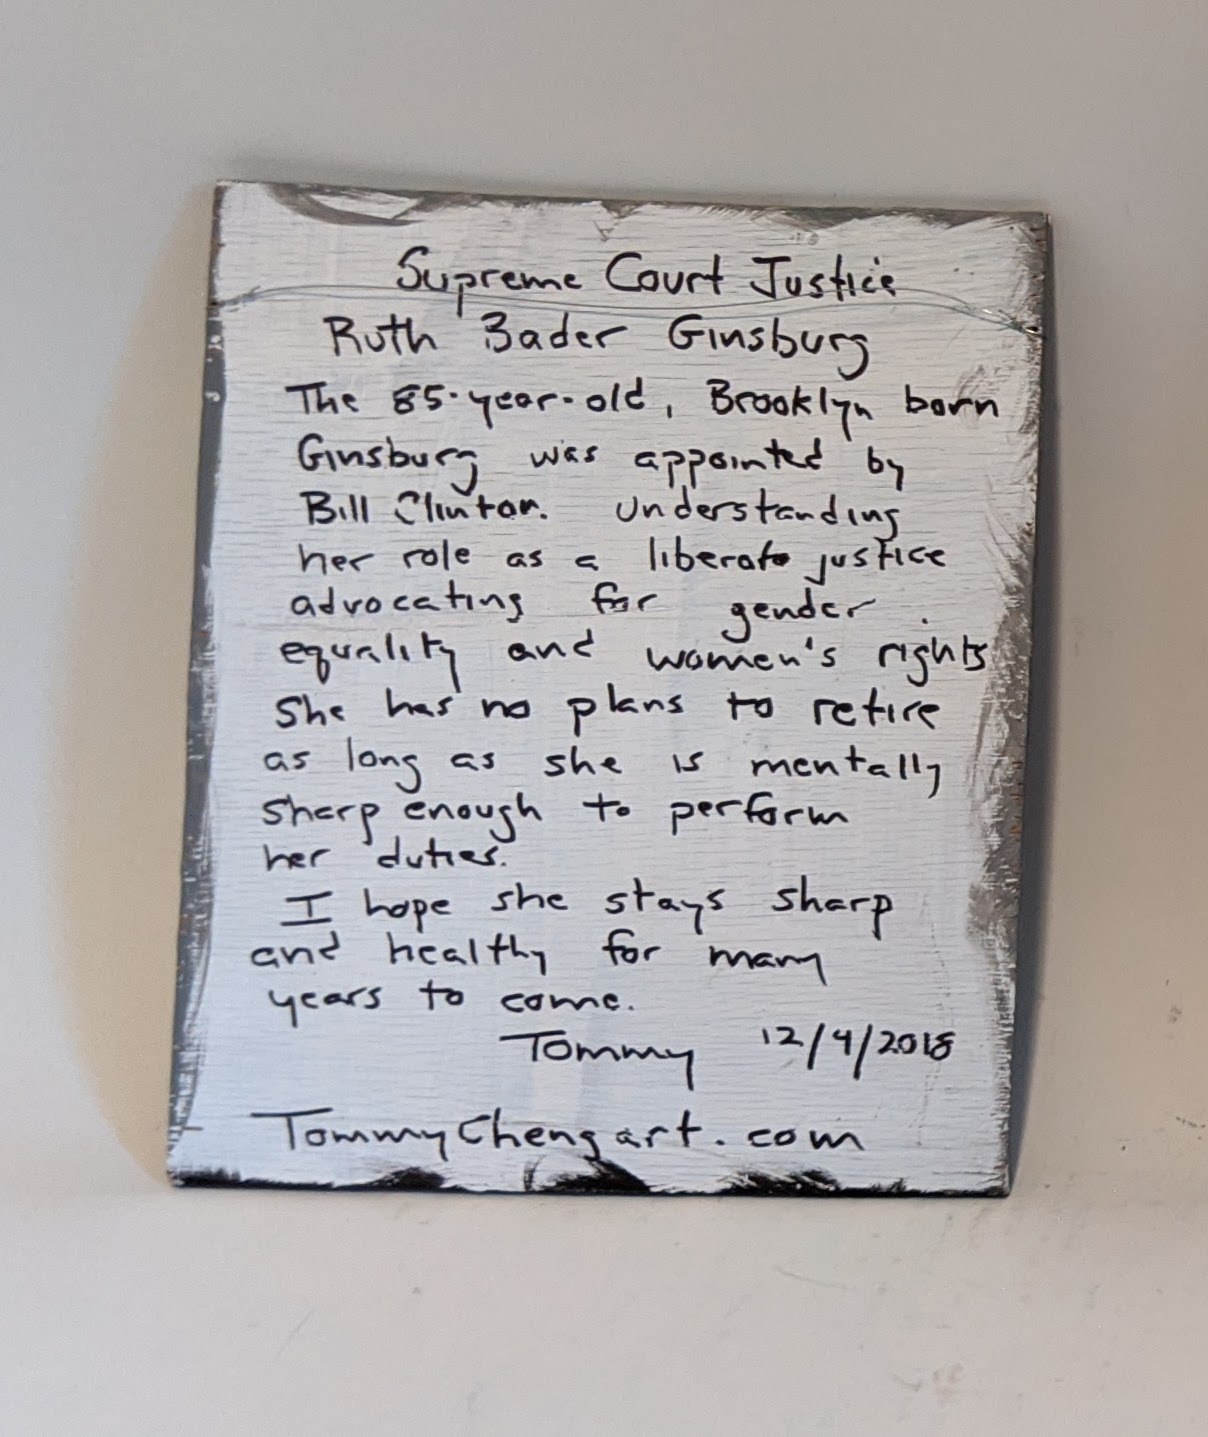 Supreme Court Justice
Ruth Bader Ginsburg
The 85-year-old, Brooklyn born
Ginsburg was appointed by
Bill Clinton. Understanding
her role as a liberate justice
advocating for gender
equality and women's rights
She has no plans to retire
as long as she is mentally
sharp enough to perform
her duties.
I hope she stays sharp
and healthy for many
years to come.
Tommy 12/4/2018
TommyChengart.com